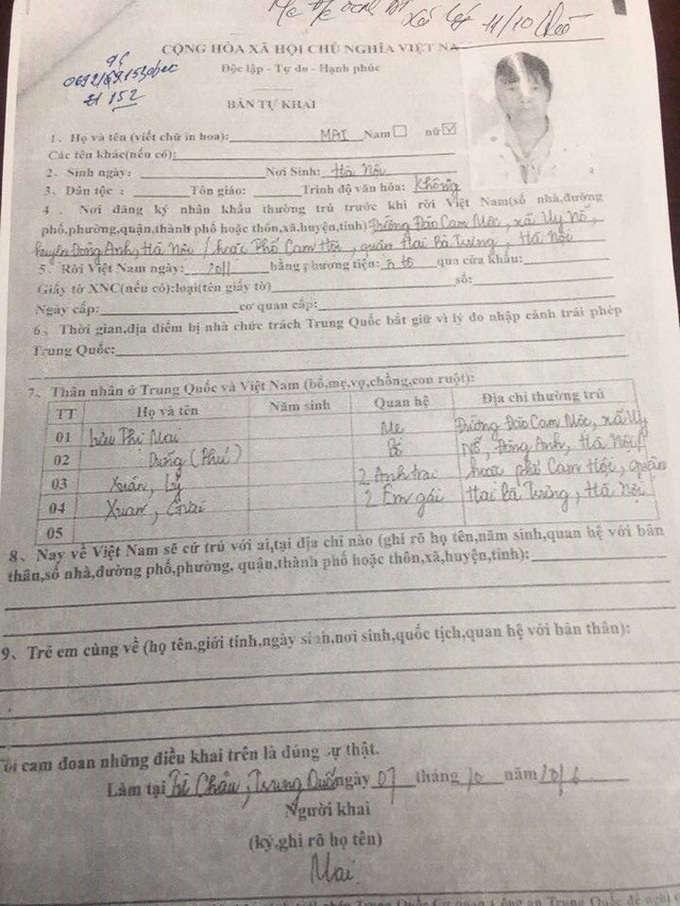 11/10
CỘNG HÒA XÃ HỘI CHỦ NGHĨA VIỆT NA
Độc lập - Tự do - Hạnh phúc
152
BẢN TỰ KHAI
1、Họ và tên (viết chữ in hoa): MAI Nam □ nữ ☑
Các tên khác(nếu có):
2、Sinh ngày: Nơi Sinh: Hà Nội
3、Dân tộc : Tôn giáo: Trình độ văn hóa: Không
4 、Nơi đăng ký nhân khẩu thường trú trước khi rời Việt Nam(số nhà,đường
phố,phường,quận,thành phố hoặc thôn,xã,huyện,tỉnh) Đường Đào Cam Mộc, xã Uy Nỗ,
huyện Đông Anh, Hà Nội / hoặc Phố Cam Hội, quận Hai Bà Trưng, Hà Nội
5、Rời Việt Nam ngày: 2011 bằng phương tiện: ô tô qua cửa khẩu:
Giấy tờ XNC(nếu có):loại(tên giấy tờ) số:
Ngày cấp: cơ quan cấp:
6、Thời gian,địa điểm bị nhà chức trách Trung Quốc bắt giữ vì lý do nhập cảnh trái phép
Trung Quốc:
7、Thân nhân ở Trung Quốc và Việt Nam (bố,mẹ,vợ,chồng,con ruột):
TT Họ và tên Năm sinh Quan hệ Địa chỉ thường trú
01 Lưu Thi Mai Mẹ Đường Đào Cam Mộc, xã Uy
02 Dũng (Phú) Bố Nỗ, Đông Anh, Hà Nội/
03 Xuân, Lý 2 Anh trai hoặc phố Cam Hội, quận
04 Xuan, 2 Em gái Hai Bà Trưng, Hà Nội
05
8、Nay về Việt Nam sẽ cư trú với ai,tại địa chỉ nào (ghi rõ họ tên,năm sinh,quan hệ với bản
thân,số nhà,đường phố,phường, quận,thành phố hoặc thôn,xã,huyện,tỉnh):
9、Trẻ em cùng về (họ tên,giới tính,ngày sinh,nơi sinh,quốc tịch,quan hệ với bản thân):
Tôi cam đoan những điều khai trên là đúng sự thật.
Làm tại Châu, Trung Quốc ngày 07 tháng 10 năm 2016
Người khai
(ký,ghi rõ họ tên)
Mai
Trung Quốc Cơ quan Công an Trung Quốc đề nghị